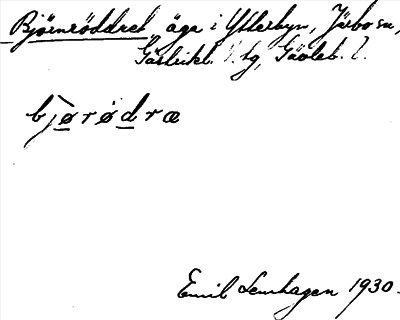 Björnröddret, äga i Ytterbyn, Järbo sn,
Gästrikl. tg, Gävleb. l.
bjørødræ
Emil Lenhagen 1930.